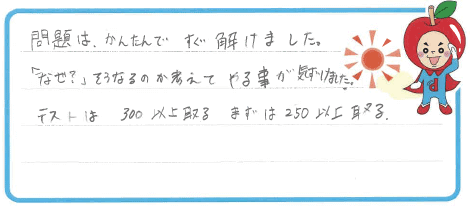 問題は、かんたんで すぐ解けました。
「なぜ?」そうなるのか考えて やる事が気ずけました。
テストは 300以上取る まずは250以上取る.